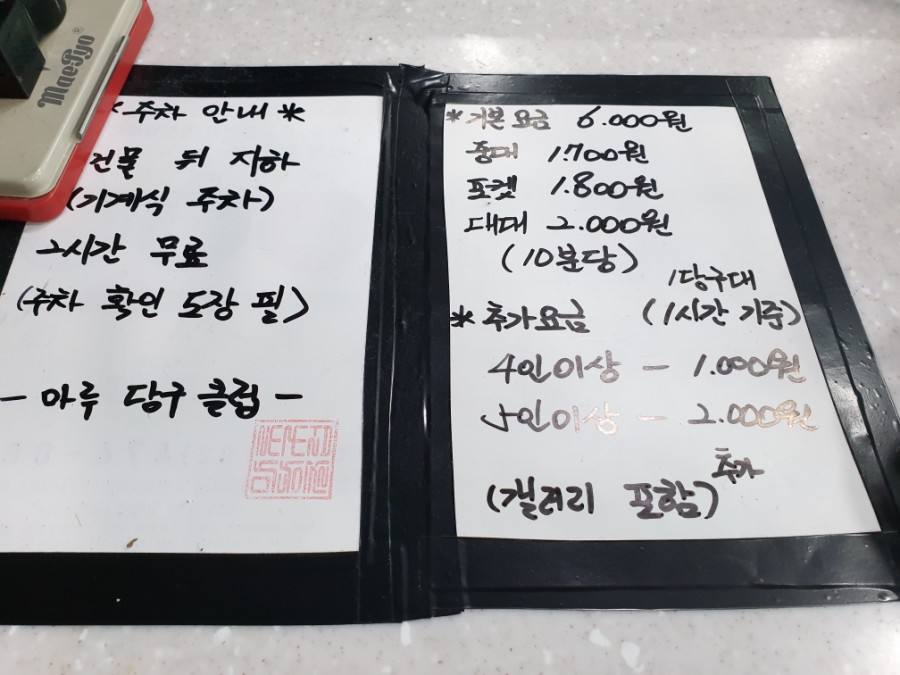 Maepyo
*주차 안내*
건물 뒤 지하
(기계식 주차)
2시간 무료
(주차 확인 도장 필)
- 마루 당구 클럽 -
*기본요금 6.000원
중대 1.700원
포켓 1.800원
대대 2.000원
(10분당)
1당구대
*추가요금 (1시간 기준)
4인이상 - 1.000원
5인이상 - 2.000원
추가
(갤러리 포함)